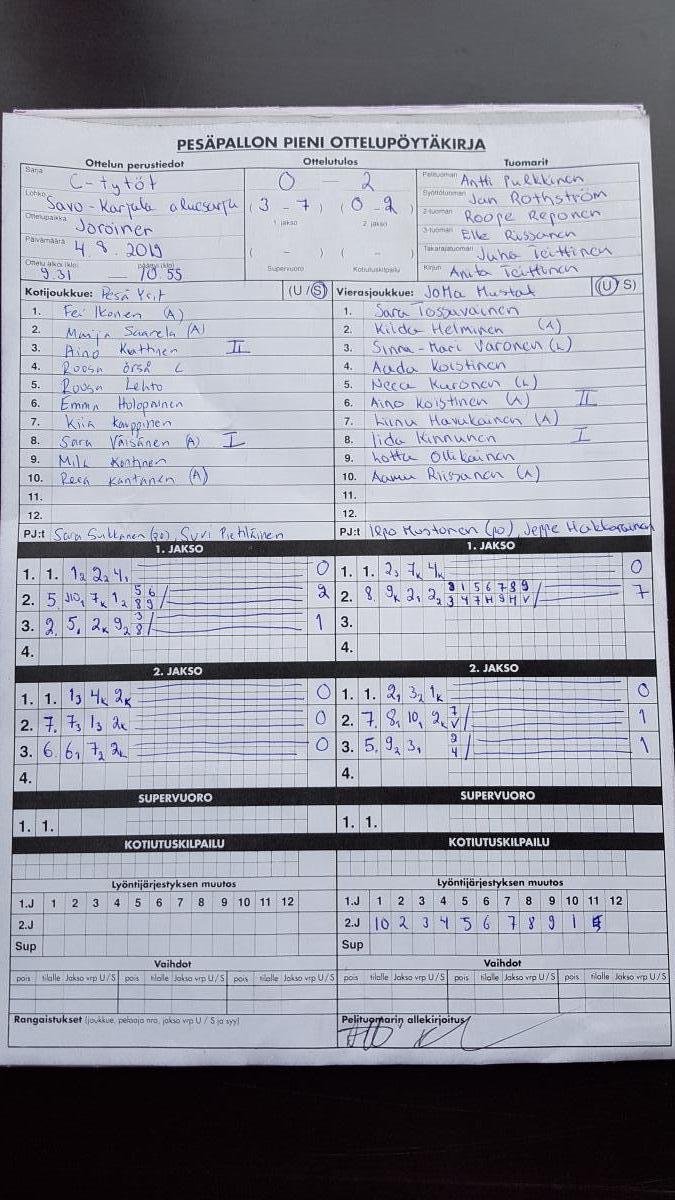 PESÄPALLON PIENI OTTELUPÖYTÄKIRJA
Ottelun perustiedot
Sarja C-tytöt
Lohko Savo-Karjala aluesarja
Ottelupaikka Joroinen
Päivämäärä 4.8.2019
Ottelu alkoi (klo) 9.31 päättyi (klo) 10.55
Ottelutulos
0 - 2
(3 - 7) (0 - 2)
1. jakso 2. jakso
( - ) ( - )
Supervuoro Kotiutuskilpailu
Tuomarit
Pelituomari Antti Pulkkinen
Syöttötuomari Jan Rothström
2-tuomari Roope Reponen
3-tuomari Elle Rissanen
Takarajatuomari Juha Teittinen
Kirjuri Anita Teittinen
Kotijoukkue: Pesä Ysit (U/S)
1. Fei Ikonen (A)
2. Maija Saarela (A)
3. Aino Karttinen II
4. Roosa Örså L
5. Roosa Lehto
6. Emma Holopainen
7. Kiia Kauppinen
8. Sara Väisänen (A) I
9. Mila Kontinen
10. Reea Kantanen (A)
11.
12.
PJ:t Sara Sulkanen (po), Suvi Pietiläinen
Vierasjoukkue: JoMa Mustat (U/S)
1. Sara Tossavainen
2. Kilda Helminen (A)
3. Sinna-Mari Varonen (L)
4. Aada Koistinen
5. Neea Kuronen (L)
6. Aino Koistinen (A) II
7. Lunu Havukainen (A)
8. Iida Kinnunen I
9. Lotta Ollikainen
10. Aamu Riissanen (A)
11.
12.
PJ:t Ilpo Mustonen (po), Jeppe Hakkarainen
1. JAKSO
1. 1. 1₂ 2₂ 4₁ 0
2. 5 J10₁ 7ₖ 1₂ 5 6 / 8 9 2
3. 2. 5₁ 2ₖ 9₂ 3 / 8 1
4.
1. JAKSO
1. 1. 2₃ 7ₖ 4ₖ 0
2. 8. 9ₖ 2₁ 2₂ 3 1 5 6 7 8 9 / 3 4 7 H 9 H V 7
3.
4.
2. JAKSO
1. 1. 1₃ 4ₖ 2ₖ 0
2. 7. 7₃ 1₃ 2ₖ 0
3. 6. 6₁ 7₂ 2ₖ 0
4.
2. JAKSO
1. 1. 2₁ 3₂ 1ₖ 0
2. 7. 8₁ 10₁ 2ₖ 7 / V 1
3. 5. 9₂ 3₁ 2 / 4 1
4.
SUPERVUORO
1. 1.
SUPERVUORO
1. 1.
KOTIUTUSKILPAILU
KOTIUTUSKILPAILU
Lyöntijärjestyksen muutos
1.J 1 2 3 4 5 6 7 8 9 10 11 12
2.J
Sup
Lyöntijärjestyksen muutos
1.J 1 2 3 4 5 6 7 8 9 10 11 12
2.J 10 2 3 4 5 6 7 8 9 1
Sup
Vaihdot
pois tilalle Jakso vrp U/S pois tilalle Jakso vrp U/S pois tilalle Jakso vrp U/S
Vaihdot
pois tilalle Jakso vrp U/S pois tilalle Jakso vrp U/S pois tilalle Jakso vrp U/S
Rangaistukset (joukkue, pelaaja nro, jakso vrp U / S ja syy)
Pelituomarin allekirjoitus